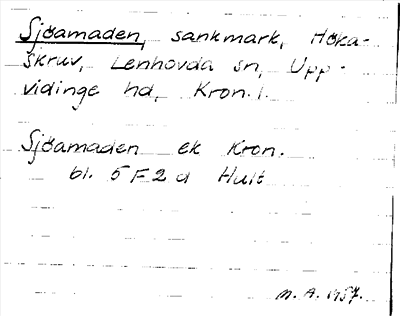 Sjöamaden, sankmark, Höka-
skruv, Lenhovda sn, Upp-
vidinge hd, Kron. l.
Sjöamaden ek Kron.
bl. 5 F 2 d Hult
M. A. 1957.